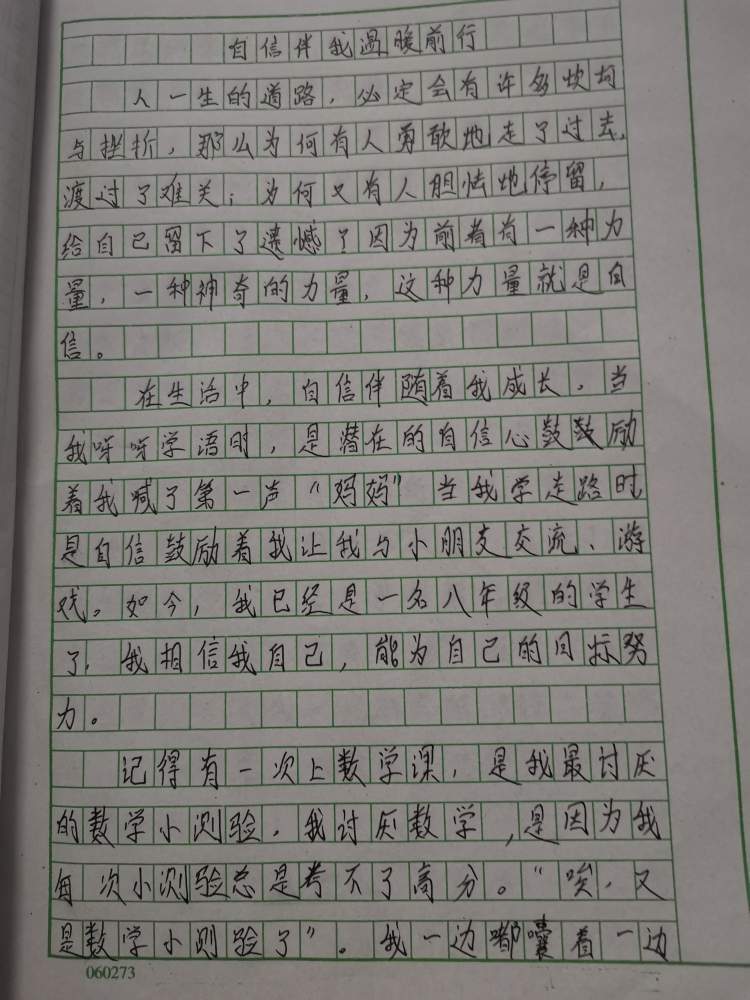 自信伴我温暖前行
人一生的道路，必定会有许多坎坷
与挫折，那么为何有人勇敢地走了过去，
渡过了难关；为何又有人胆怯地停留，
给自己留下了遗憾了因为前者有一种力
量，一种神奇的力量，这种力量就是自
信。
在生活中，自信伴随着我成长，当
我呀呀学语时，是潜在的自信心鼓鼓励
着我喊了第一声“妈妈”当我学走路时
是自信鼓励着我让我与小朋友交流、游
戏。如今，我已经是一名八年级的学生
了，我相信我自己，能为自己的目标努
力。
记得有一次上数学课，是我最讨厌
的数学小测验，我讨厌数学，是因为我
每次小测验总是考不了高分。“唉，又
是数学小测验了”。我一边嘟囔着一边
060273